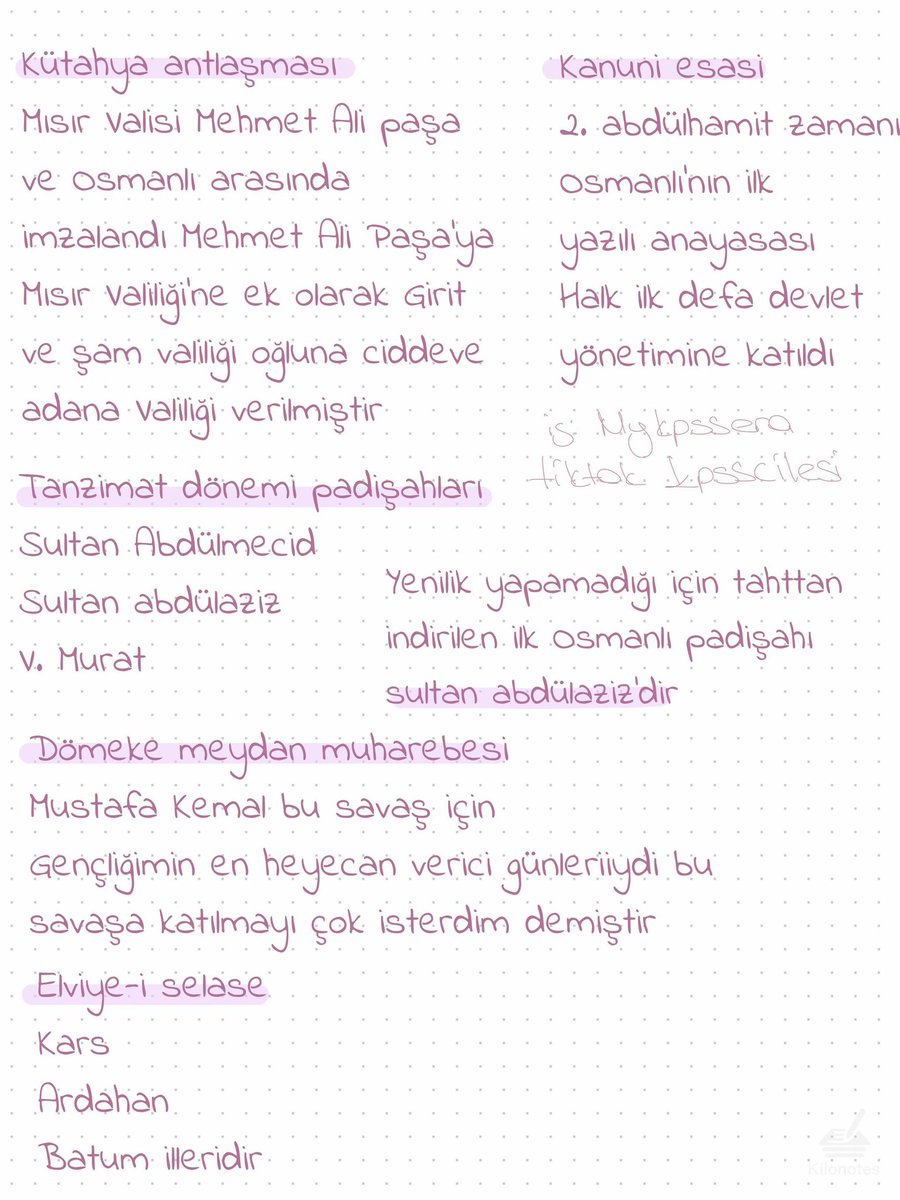 Kütahya antlaşması
Mısır Valisi Mehmet Ali paşa
ve Osmanlı arasında
imzalandı Mehmet Ali Paşa'ya
Mısır Valiliği'ne ek olarak Girit
ve şam valiliği oğluna ciddeve
adana Valiliği verilmiştir
Kanuni esasi
2. abdülhamit zamanı
Osmanlı'nın ilk
yazılı anayasası
Halk ilk defa devlet
yönetimine katıldı
is Mykpssera
tiktok kpsscilesi
Tanzimat dönemi padişahları
Sultan Abdülmecid
Sultan abdülaziz
V. Murat
Yenilik yapamadığı için tahttan
indirilen ilk Osmanlı padişahı
sultan abdülaziz'dir
Dömeke meydan muharebesi
Mustafa Kemal bu savaş için
Gençliğimin en heyecan verici günleriiydi bu
savaşa katılmayı çok isterdim demiştir
Elviye-i selase
Kars
Ardahan
Batum illeridir
Kilonotes